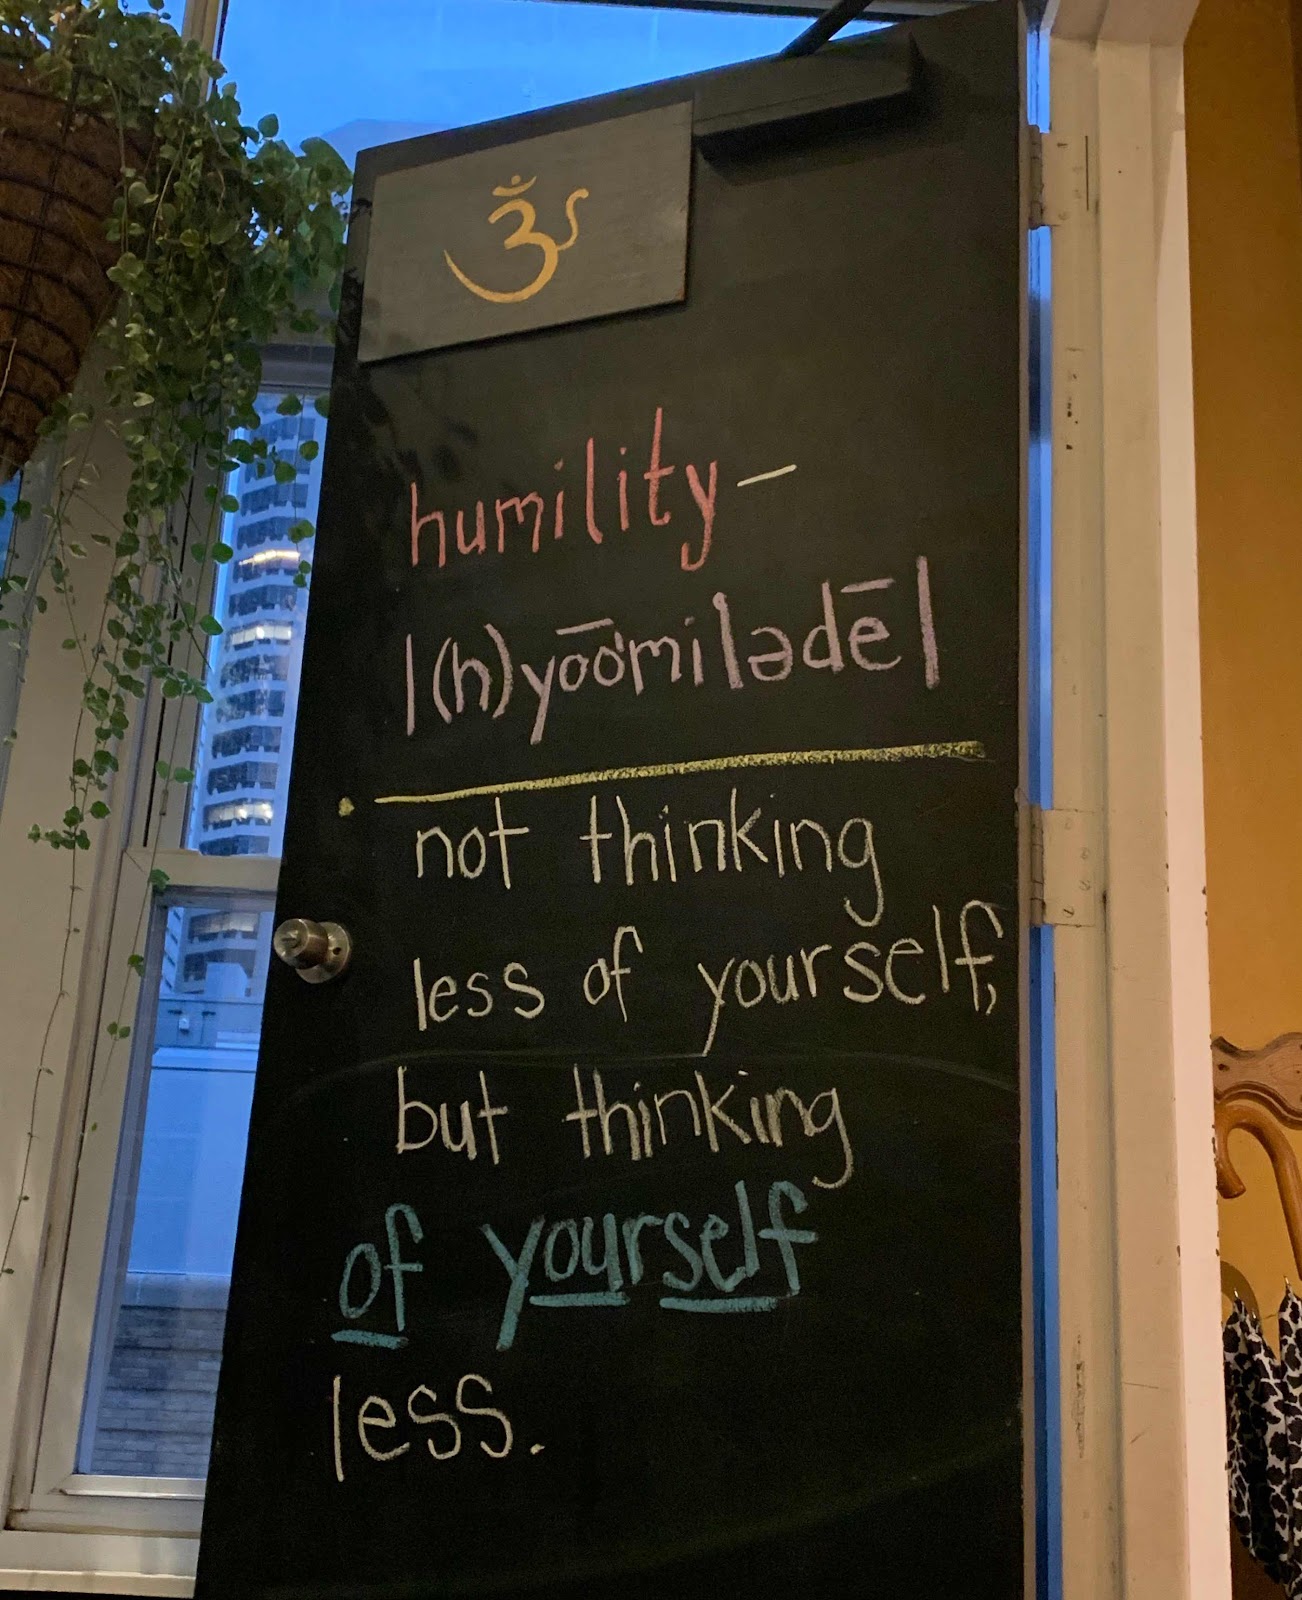 ॐ
humility –
|(h)yo͞omilədē|
not thinking
less of yourself,
but thinking
of yourself
less.